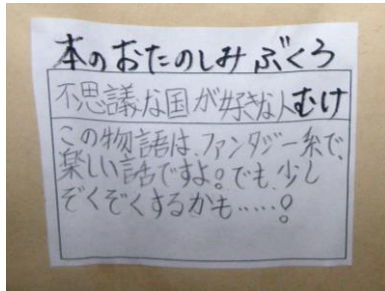 本のおたのしみぶくろ
不思議な国が好きな人むけ
この物語は、ファンタジー糸で、
楽しい話ですよ。でも、少し
ぞくぞくするかも……?